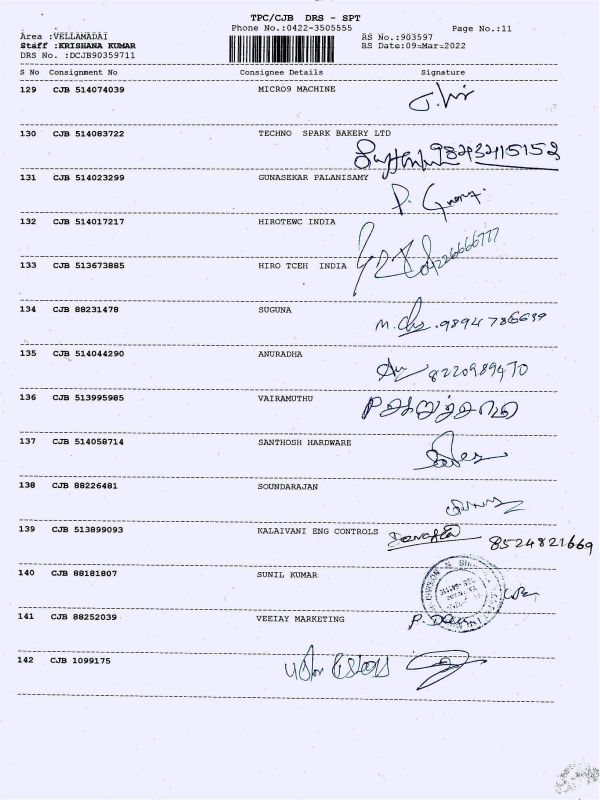 TPC/CJB DRS - SPT
Phone No.:0422-3505555 Page No.:11
Area :VELLAMADAI RS No.:903597
Staff :KRISHANA KUMAR RS Date:09-Mar-2022
DRS No. :DCJB90359711
S No Consignment No Consignee Details Signature
129 CJB 514074039 MICRO9 MACHINE
130 CJB 514083722 TECHNO SPARK BAKERY LTD
131 CJB 514023299 GUNASEKAR PALANISAMY
132 CJB 514017217 HIROTEWC INDIA
133 CJB 513673885 HIRO TCEH INDIA
134 CJB 88231478 SUGUNA
135 CJB 514044290 ANURADHA 8220989470
136 CJB 513995985 VAIRAMUTHU
137 CJB 514058714 SANTHOSH HARDWARE
138 CJB 88226481 SOUNDARAJAN
139 CJB 513899093 KALAIVANI ENG CONTROLS 8524821669
140 CJB 88181807 SUNIL KUMAR
141 CJB 88252039 VEEJAY MARKETING
142 CJB 1099175